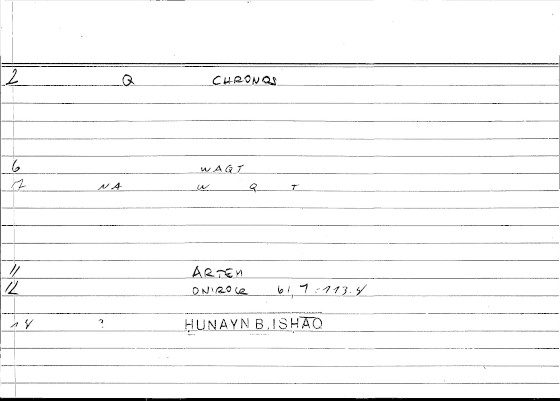 2 Q CHRONOS
6 WAQT
7 NA W Q T
11 ARTEM
12 ONIROCR 61,7=113.4
14 ? ḤUNAYN B. ISḤĀQ